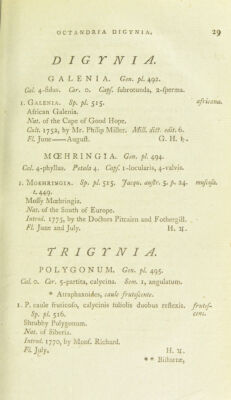 OCTANDRIA DIGYNIA. 29
DIGYNIA.
GALENIA. Gen. pl. 492.
Cal. 4-fidus. Cor. 0. Capſ. ſubrotunda, 2-ſperma.
1. Galenia. Sp. pl. 515. africana.
African Galenia.
Nat. of the Cape of Good Hope.
Cult. 1752, by Mr. Philip Miller. Mill. dict. edit. 6.
Fl. June—Auguſt. G. H. ♄.
MŒHRINGIA. Gen. pl. 494.
Cal. 4-phyllus. Petala 4. Capſ. 1-locularis, 4-valvis.
1. Moehringia. Sp. pl. 515. Jacqu. auſtr. 5. p. 24. muſcoſa.
t. 449.
Moſſy Mœhringia.
Nat. of the South of Europe.
Introd. 1775, by the Doctors Pitcairn and Fothergill.
Fl. June and July. H. ♃.
TRIGYNIA.
POLYGONUM. Gen. pl. 495.
Cal. 0. Cor. 5-partita, calycina. Sem. 1, angulatum.
* Atraphaxoides, caule fruteſcente.
1. P. caule fruticoſo, calycinis foliolis duobus reflexis. fruteſ-
Sp. pl. 516. cens.
Shrubby Polygonum.
Nat. of Siberia.
Introd. 1770, by Monſ. Richard.
Fl. July. H. ♃.
* * Biſtortæ,